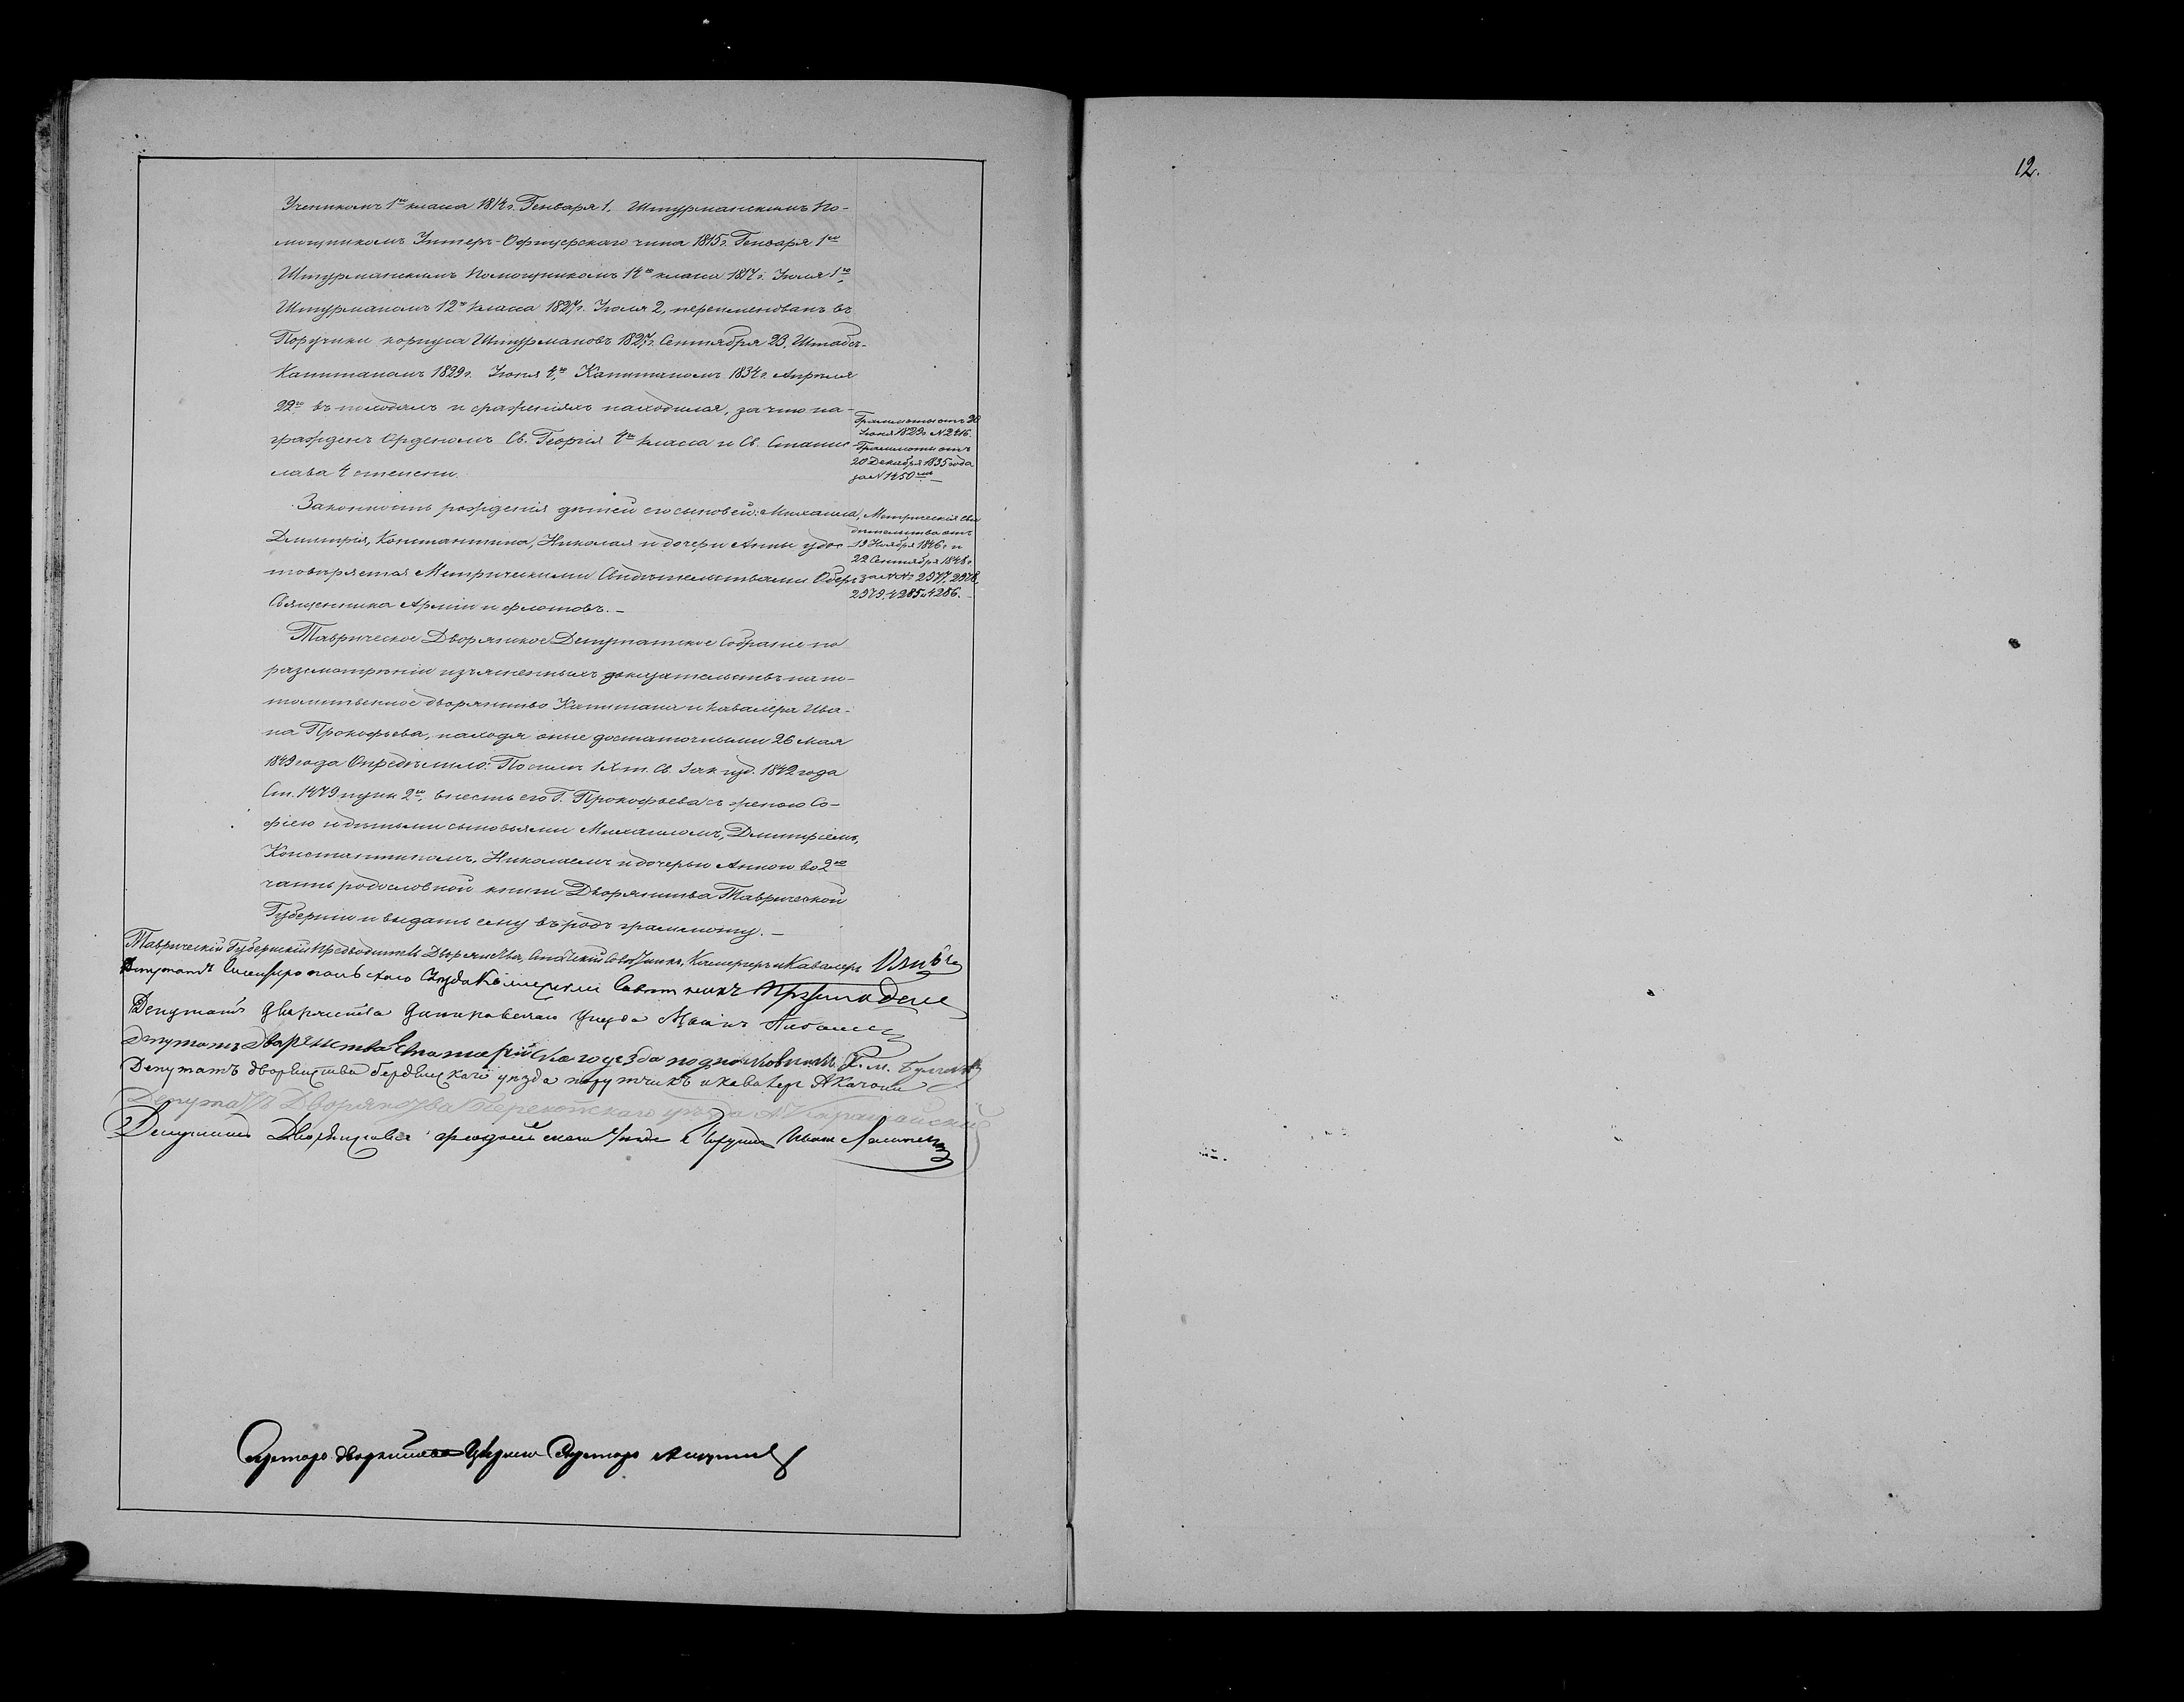 Ученикомъ 1го класса 1814 г. Генваря 1. Штурманскимъ По-
мощникомъ Унтеръ-Офицерскаго чина 1815 г. Генваря 1го
Штурманскимъ Помощникомъ 14го класса 1817 г. Июля 1го,
Штурманомъ 12го класса 1827 г. Июля 2, переименованъ въ
Поручики корпуса Штурмановъ 1827 г. Сентября 23, Штабсъ-
Капитаномъ 1829 г. Капитаномъ 1834 г. Апрѣля
22го въ походахъ и сраженіяхъ находился, за что на-
гражденъ Орденомъ Св. Георгія 4го класса и Св. Станис-
лава 4 степени.
Грамота отъ
1829 г. N 2416.
Грамота отъ
20 Декабря 1835 года
за N 1450
Законность рожденія дѣтей его сыновей: Михаила,
Дмитрія, Константина, Николая и дочери Анны удос-
товѣряется Метрическими Свидѣтельствами Оберъ
Священника Арміи и флотовъ. –
Метрическія сви
дѣтельства отъ
19 Ноября 1846 г. и
22 Сентября 1848 г.
за NN 2977, 2978,
2979, 4285 и 4286. –
Таврическое Дворянское Депутатское Собраніе по
разсмотрѣніи изъясненныхъ доказательствъ на по-
томственное дворянство Капитана и Кавалера Ива-
на Прокофьева, находя оные достаточными 26 Мая
1849 года Опредѣлило: По силѣ IX т. Св. Зак. изд. 1842 года
Ст. 1479 пунк. 2го, внесть его Г. Прокофьева съ женою Со-
фіею и дѣтьми сыновьями Михаиломъ, Дмитріемъ,
Константиномъ, Николаемъ и дочерью Анною во 2ю
часть родословной книги Дворянства Таврической
Губерніи и выдать ему въ родъ грамоту. –
Таврическій Губернскій Предводитель Дворянства, Статскій Совѣтникъ, Камергеръ и Кавалеръ
Депутатъ Симферопольскаго Уѣзда Коллежскій Совѣтникъ
Депутатъ дворянства Днѣпровскаго Уѣзда
Депутатъ дворянства Евпаторійскаго уѣзда подполковникъ
Депутатъ дворянства Бердянскаго уѣзда порутчикъ и кавалеръ
Депутатъ Дворянства Перекопскаго уѣзда
Депутатъ Дворянства Феодосійскаго Уѣзда Иванъ
Секретарь дворянства
12.